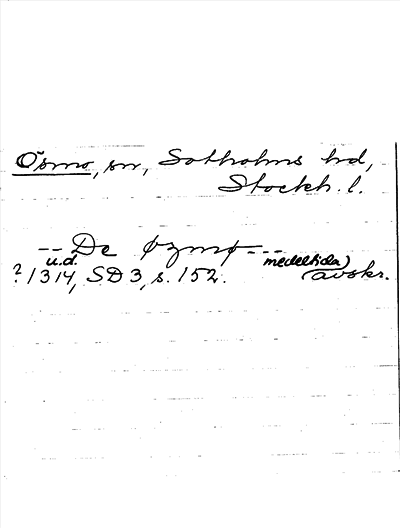 Ösmo, sn, Sotholms hd,
Stockh. l.
-- De øzmø ---
u.d. medeltida)
? 1314, SD 3, s. 152. (avskr.